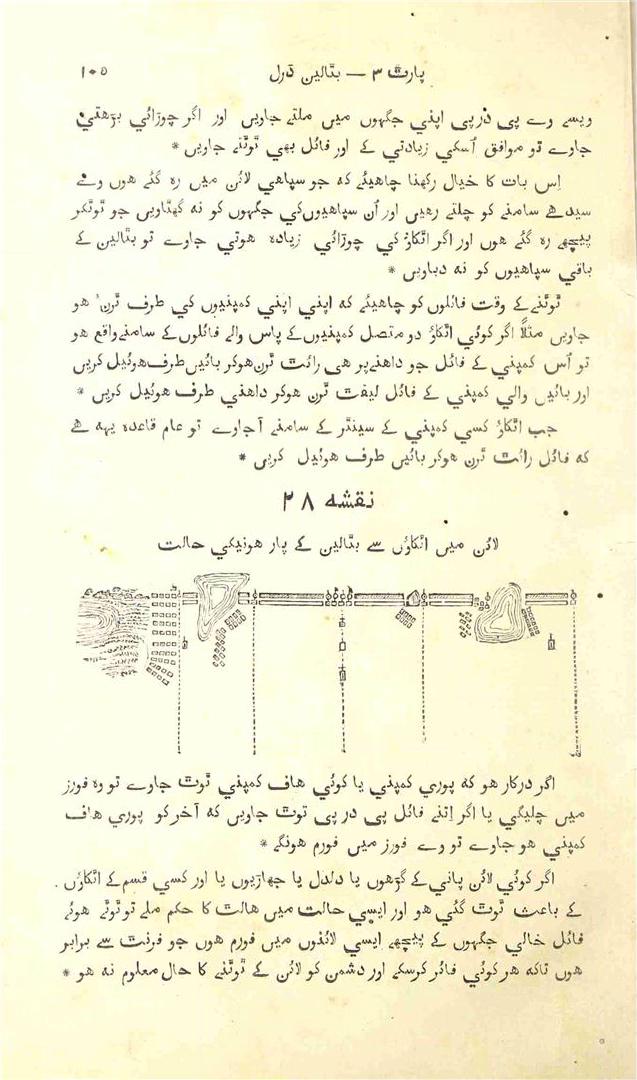 پارٹ ۳ — بٹالین ڈرل ۱۰۵
ویسے وے پی درپی اپنی جگہوں میں ملتے جاویں اور اگر چوڑائي بڑھتي
جاوے تو موافق اُسکي زیادتي کے اور فائل بھي ٹوٹتے جاویں *
اِس بات کا خیال رکھنا چاهیئے که جو سپاهي لائن میں ره گئے هوں وے
سیدهے سامنے کو چلتے رهیں اور اُن سپاهیوں کي جگہوں کو نه گھٹاویں جو ٹوٹکر
پیچھے ره گئے هوں اور اگر اٹکاؤ کي چوڑائي زیاده هوتي جاوے تو بٹالین کے
باقي سپاهیوں کو نه دباویں *
ٹوٹنے کے وقت فائلوں کو چاهیئے که اپني اپني کمپنیوں کي طرف ٹرن هو
جاویں مثلاً اگر کوئي اٹکاؤ دو متصل کمپنیوں کے پاس والے فائلوں کے سامنے واقع هو
تو اُس کمپني کے فائل جو داهنے پر هي رائٹ ٹرن هوکر بائیں طرف هوئیل کریں
اور بائیں والي کمپني کے فائل لیفٹ ٹرن هوکر داهني طرف هوئیل کریں *
جب اٹکاؤ کسي کمپني کے سینٹر کے سامنے آجاوے تو عام قاعده یہه هے
که فائل رائٹ ٹرن هوکر بائیں طرف هوئیل کریں *
نقشه ۲۸
لائن میں اٹکاؤں سے بٹالین کے پار هونیکي حالت
اگر درکار هو که پوري کمپني یا کوئي هاف کمپني ٹوٹ جاوے تو وه فورز
میں چلیگي یا اگر اِتنے فائل پی درپی ٹوٹ جاویں که آخرکو پوري هاف
کمپني هو جاوے تو وے فورز میں فورم هونگے *
اگر کوئي لائن پاني کے گڑهوں یا دلدل یا جھاڑیوں یا اور کسي قسم کے اٹکاؤں
کے باعث ٹوٹ گئي هو اور ایسي حالت میں هالٹ کا حکم ملے تو ٹوٹے هوئے
فائل خالي جگہوں کے پیچھے ایسي لائنوں میں فورم هوں جو فرنٹ سے برابر
هوں تاکه هر کوئي فائر کرسکے اور دشمن کو لائن کے ٹوٹنے کا حال معلوم نه هو *